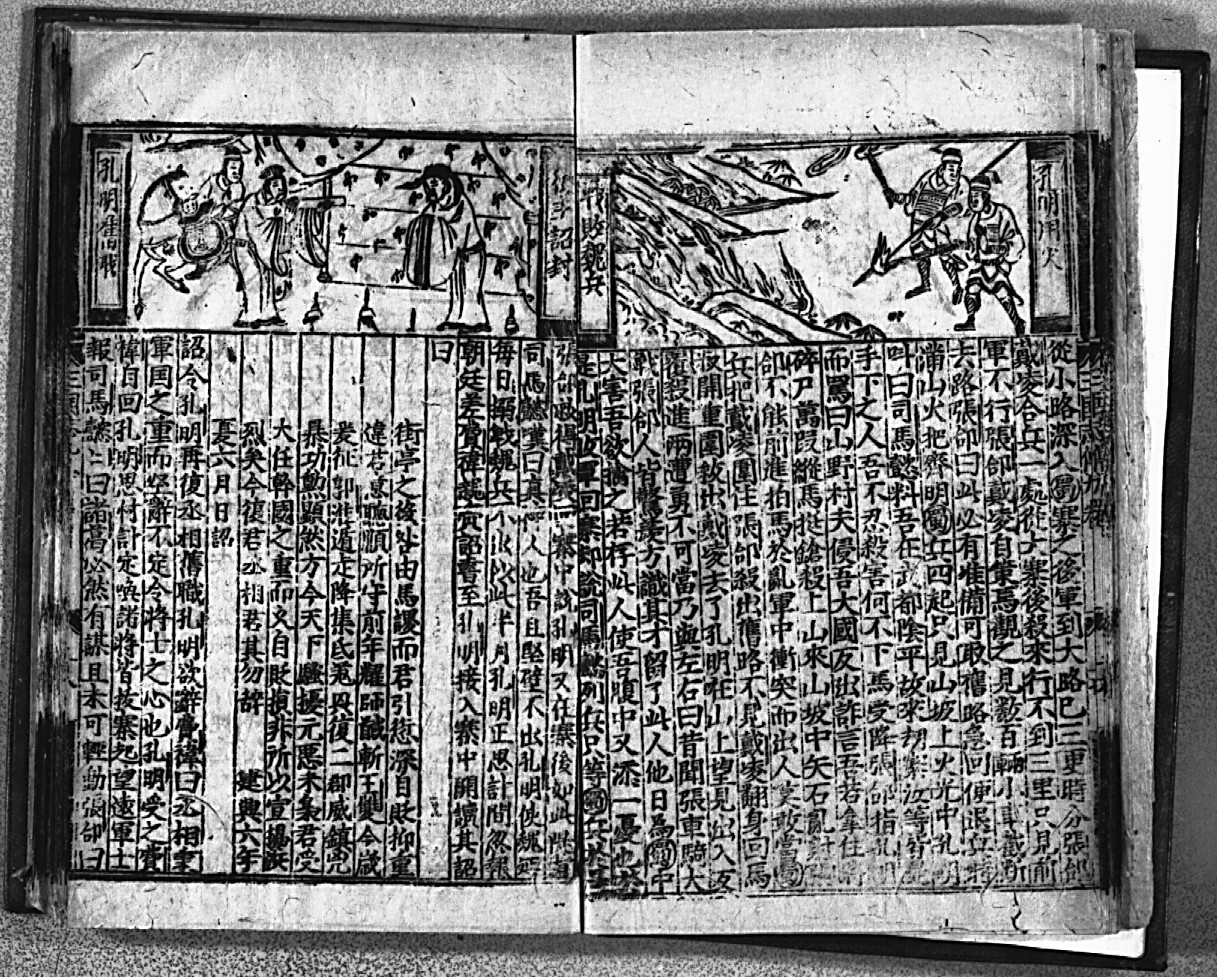 孔明用火
戰敗魏兵
從小路深入蜀寨之後軍到大路已三更時分張郃
戴凌合兵一處從大寨後殺來行不到三里只見前
軍不行張郃戴凌自策馬觀之見数百輛小車截斷
去路張郃曰此必有准備可取舊路急回便退兵時
滿山火把齊明蜀兵四起只見山坡上火光中孔明
叫曰司馬懿料吾在武都陰平故來刼寨汝等皆
手下之人吾不忍殺害何不下馬受降張郃指孔明
而罵曰山野村夫侵吾大國反出詐言吾若拿住
碎尸萬段縱馬挺鎗殺上山來山坡中矢石亂
郃不能前進拍馬於亂軍中衝突而出人莫敢當蜀
兵把戴凌圍住張郃殺出舊路不見戴凌翻身回馬
殺開重圍救出戴凌去了孔明在山上望見出入反
覆殺進兩遭勇不可當乃與左右曰昔聞張車騎大
戰張郃人皆驚羨方識其才留了此人他日為蜀中
大害吾欲擒之若存此人使吾腹中又添一憂也
孔明收軍回寨却說司馬懿列兵只等蜀兵
詔封
孔明舊職
張郃救得戴凌 寨中說孔明又在寨後如此
司馬懿驚曰真 人也吾且堅壁不出孔明使魏延
每日搦戰魏兵不出 此半月孔明正思計間忽報
朝廷差費禕 詔書至孔明接入寨中開讀其詔
曰
街亭之後咎由馬謖而君引愆深自貶抑重
違君意聽順所守前年耀師馘斬王雙今歲
爰征郭淮遁走降集氐羌興復二郡威鎮兇
暴功勲顯然方今天下騷擾元惡未梟君受
大任幹國之重而久自貶損非所以宣揚洪
烈矣今復君丞相君其勿辞 建興六年
夏六月日詔
詔令孔明再復丞相舊職孔明欲辭費禕曰丞相掌
軍国之重而堅辭不定令將士之心也孔明受之費
禕自回孔明思忖計定喚諸將皆拔寨起望遠軍士
報司馬懿々曰諸葛必然有謀且未可輕動張郃曰